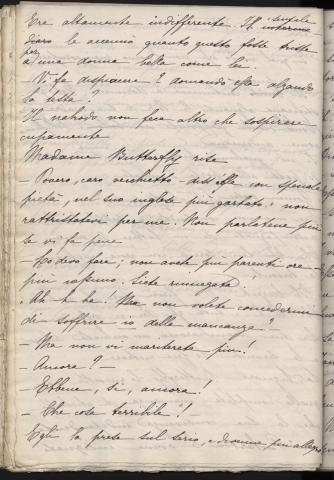 Era altamente indifferente. Il sensale
le accennò quanto questo fosse triste
per una donna bella come lei.
– Vi fa dispiacere? domandò essa alzando
la testa?
Il nakodo non fece altro che sospirare
cupamente
Madame Butterfly rise
– Povero, caro vecchietto – diss'essa con speciale
pietà, nel suo inglese più garbato: non
rattristatevi per me. Non parlatene più
se vi fa pena
– Lo devo fare; non avete più parenti ora –
più nessuno. Siete rinnegata.
– Ah h ha! Ma non volete concedermi
di soffrire io della mancanza?
– Ma non vi mariterete più!
– Ancora? –
– Ebbene, si, ancora!
– Che cosa terribile!
Egli la prese sul serio, e divenne più allegro